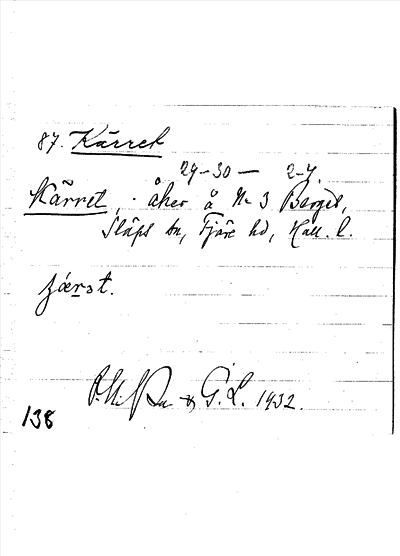 87. Kärret
29-30 — 2-7.
Kärret, åker å Nr 3 Berget,
Släps sn, Fjäre hd, Hall. l.
G.L. 1932.
138